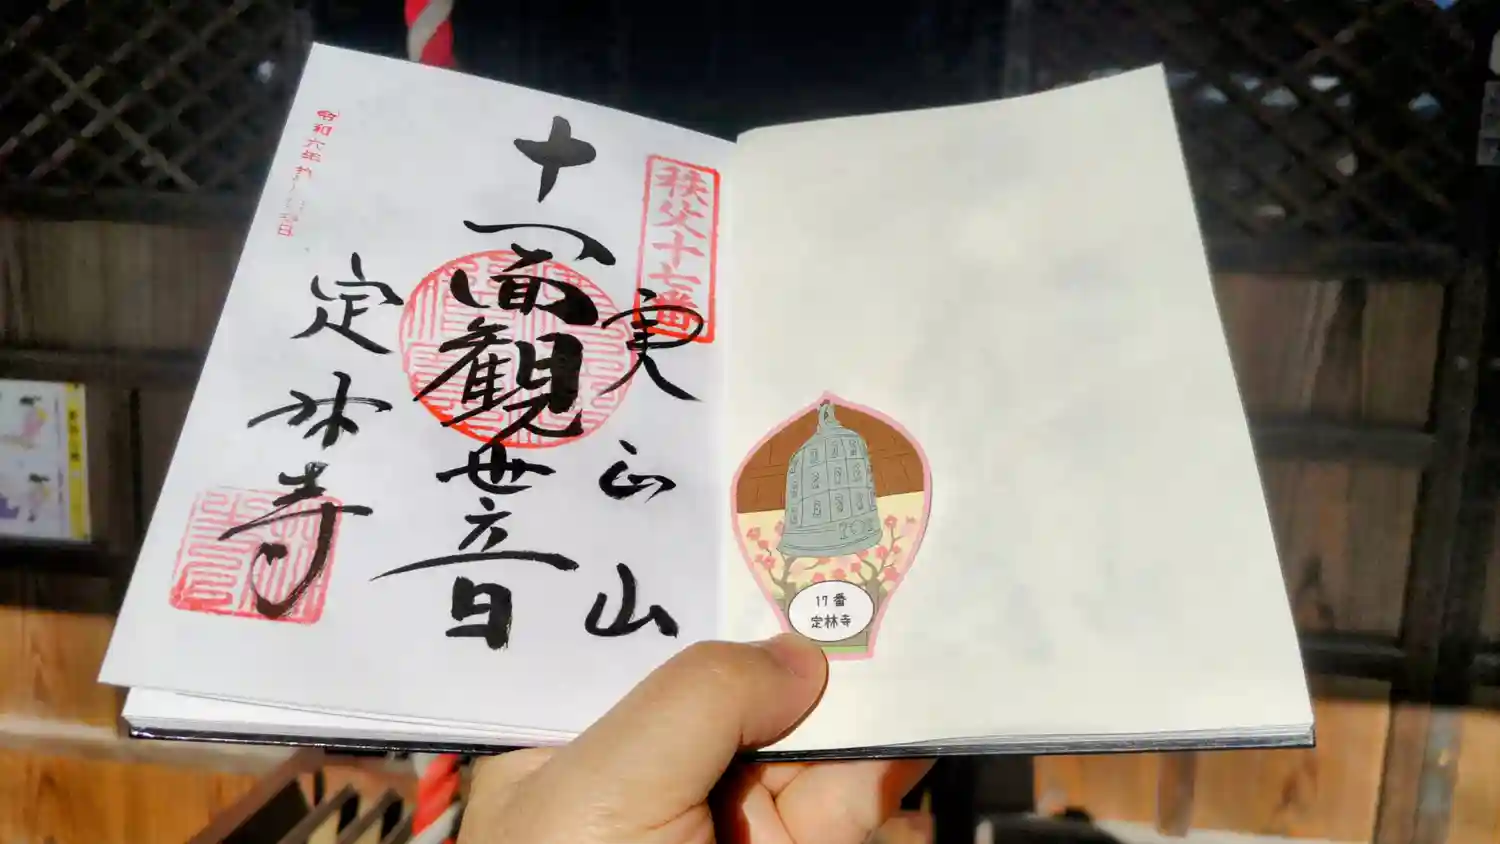 秩父十七番
実正山
十一面観世音
定林寺
令和六年
日
17番
定林寺